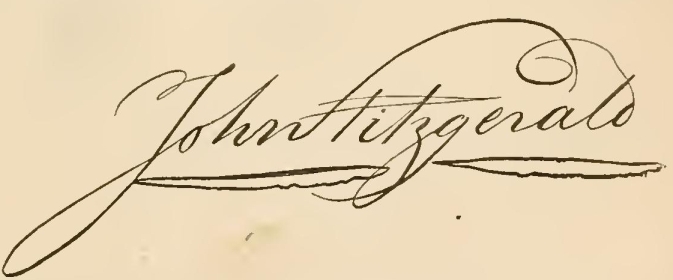 John Fitzgerald